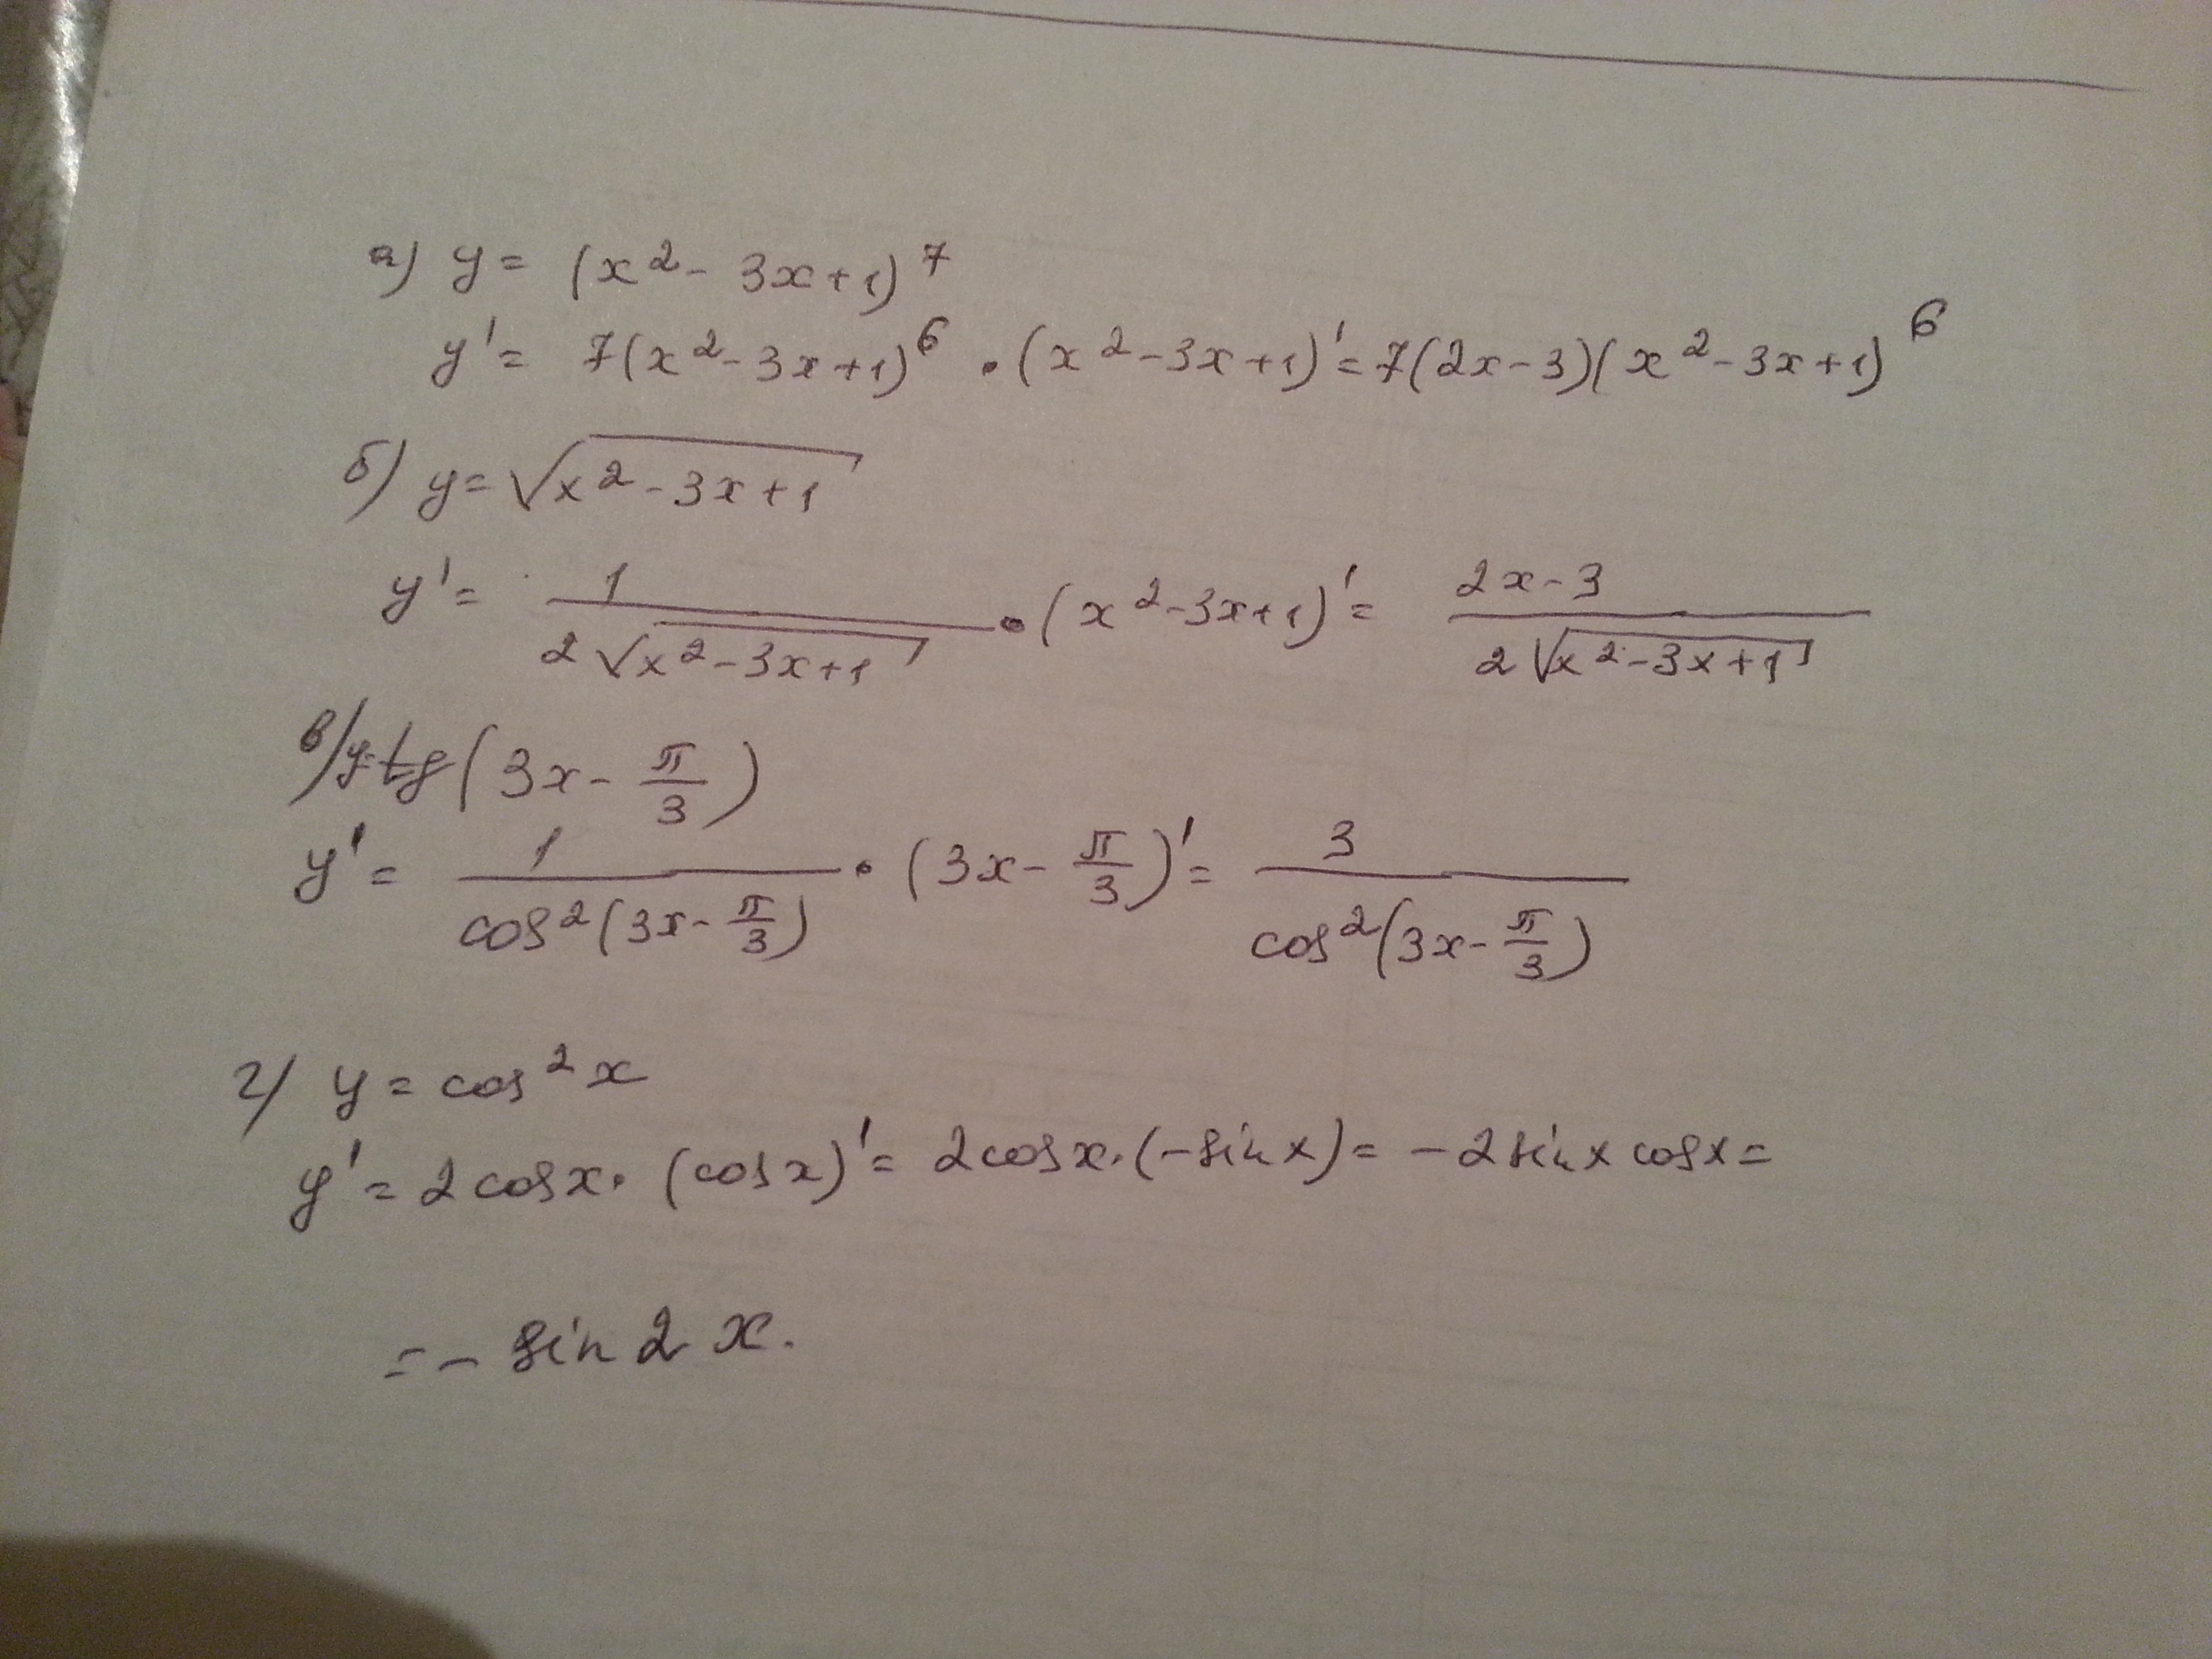 а) y = (x² - 3x + 1)⁷
y' = 7(x² - 3x + 1)⁶ · (x² - 3x + 1)' = 7(2x - 3)(x² - 3x + 1)⁶
б) y = √(x² - 3x + 1)
y' = 1/(2√(x² - 3x + 1)) · (x² - 3x + 1)' = (2x - 3)/(2√(x² - 3x + 1))
в) y = tg(3x - π/3)
y' = 1/(cos²(3x - π/3)) · (3x - π/3)' = 3/(cos²(3x - π/3))
г) y = cos²x
y' = 2cosx · (cosx)' = 2cosx · (-sinx) = -2sinx cosx =
= - sin 2x.